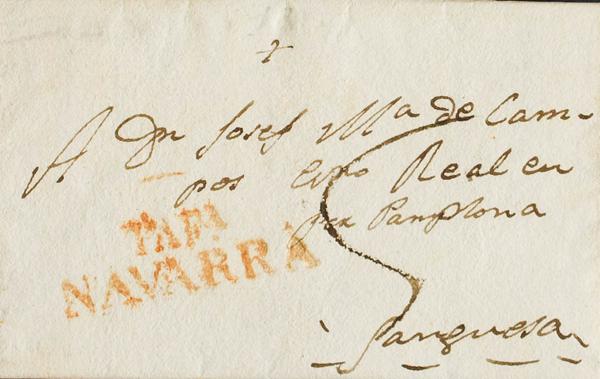 +
A Dn Josef Ma de Cam-
pos Esno Real en
por Pamplona
TAFA
NAVARRA
5
Sanguesa